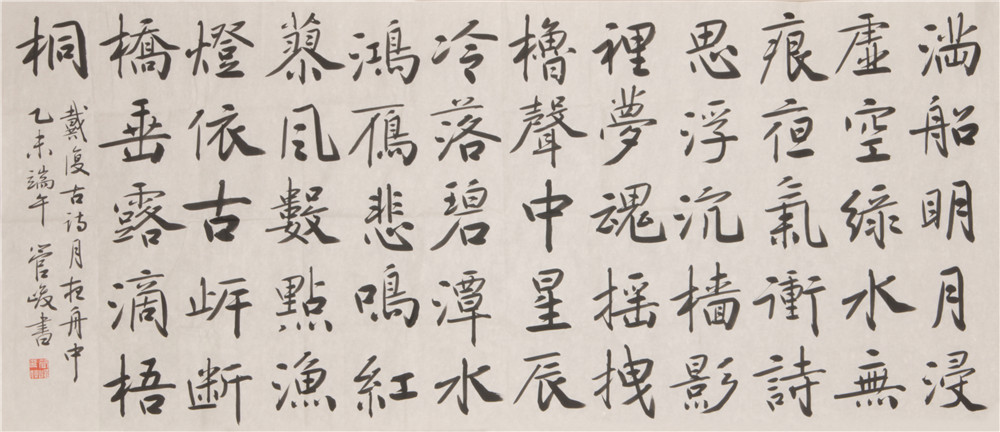 滿船明月浸
虛空綠水無
痕夜氣衝詩
思浮沉檣影
裡夢魂搖拽
櫓聲中星辰
冷落碧潭水
鴻鴈悲鳴紅
蓼風數點漁
燈依古岸斷
橋垂露滴梧
桐
戴復古詩月夜舟中
乙未端午 管峻書